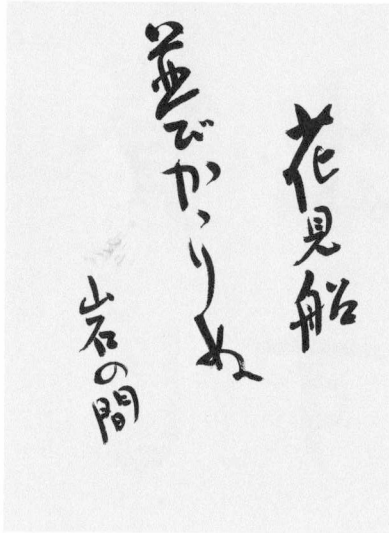 花見船
並びかゝりぬ
岩の間